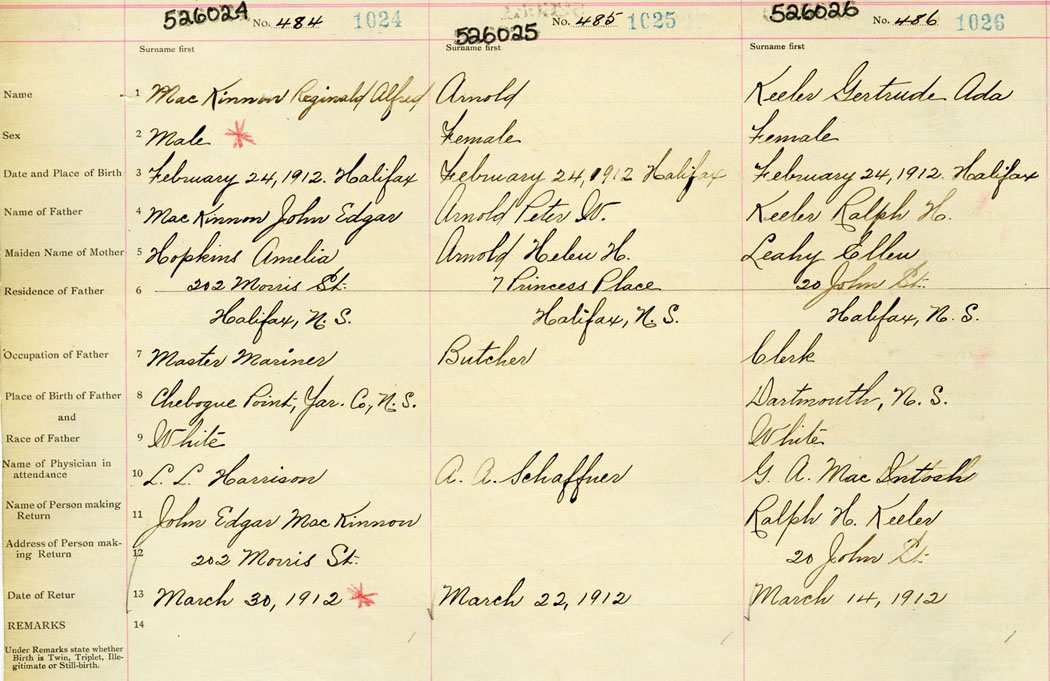 526024 No. 484 1024 526025 No. 485 1025 526026 No. 486 1026
Surname first Surname first Surname first
Name 1 Mac Kinnon Reginald Alfred Arnold Keeler Gertrude Ada
Sex 2 Male Female Female
Date and Place of Birth 3 February 24, 1912. Halifax February 24, 1912 Halifax February 24, 1912. Halifax
Name of Father 4 Mac Kinnon John Edgar Arnold Peter W. Keeler Ralph H.
Maiden Name of Mother 5 Hopkins Amelia Arnold Helen H. Leahy Ellen
Residence of Father 6 202 Morris St. 7 Princess Place 20 John St.
Halifax, N. S. Halifax, N. S. Halifax, N. S.
Occupation of Father 7 Master Mariner Butcher Clerk
Place of Birth of Father 8 Chebogue Point, Yar. Co, N. S. Dartmouth, N. S.
and
Race of Father 9 White White
Name of Physician in
attendance 10 L. L. Harrison A. A. Schaffner G. A. Mac Intosh
Name of Person making
Return 11 John Edgar Mac Kinnon Ralph H. Keeler
Address of Person mak-
ing Return 12 202 Morris St. 20 John St.
Date of Retur 13 March 30, 1912 March 22, 1912 March 14, 1912
REMARKS 14
Under Remarks state whether
Birth is Twin, Triplet, Ille-
gitimate or Still-birth.